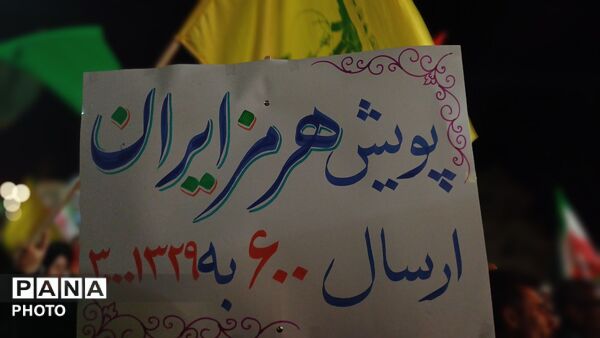 پویش هرمز ایران
ارسال ۶۰۰ به ۳۰۰۰۱۳۲۹
PANA
PHOTO